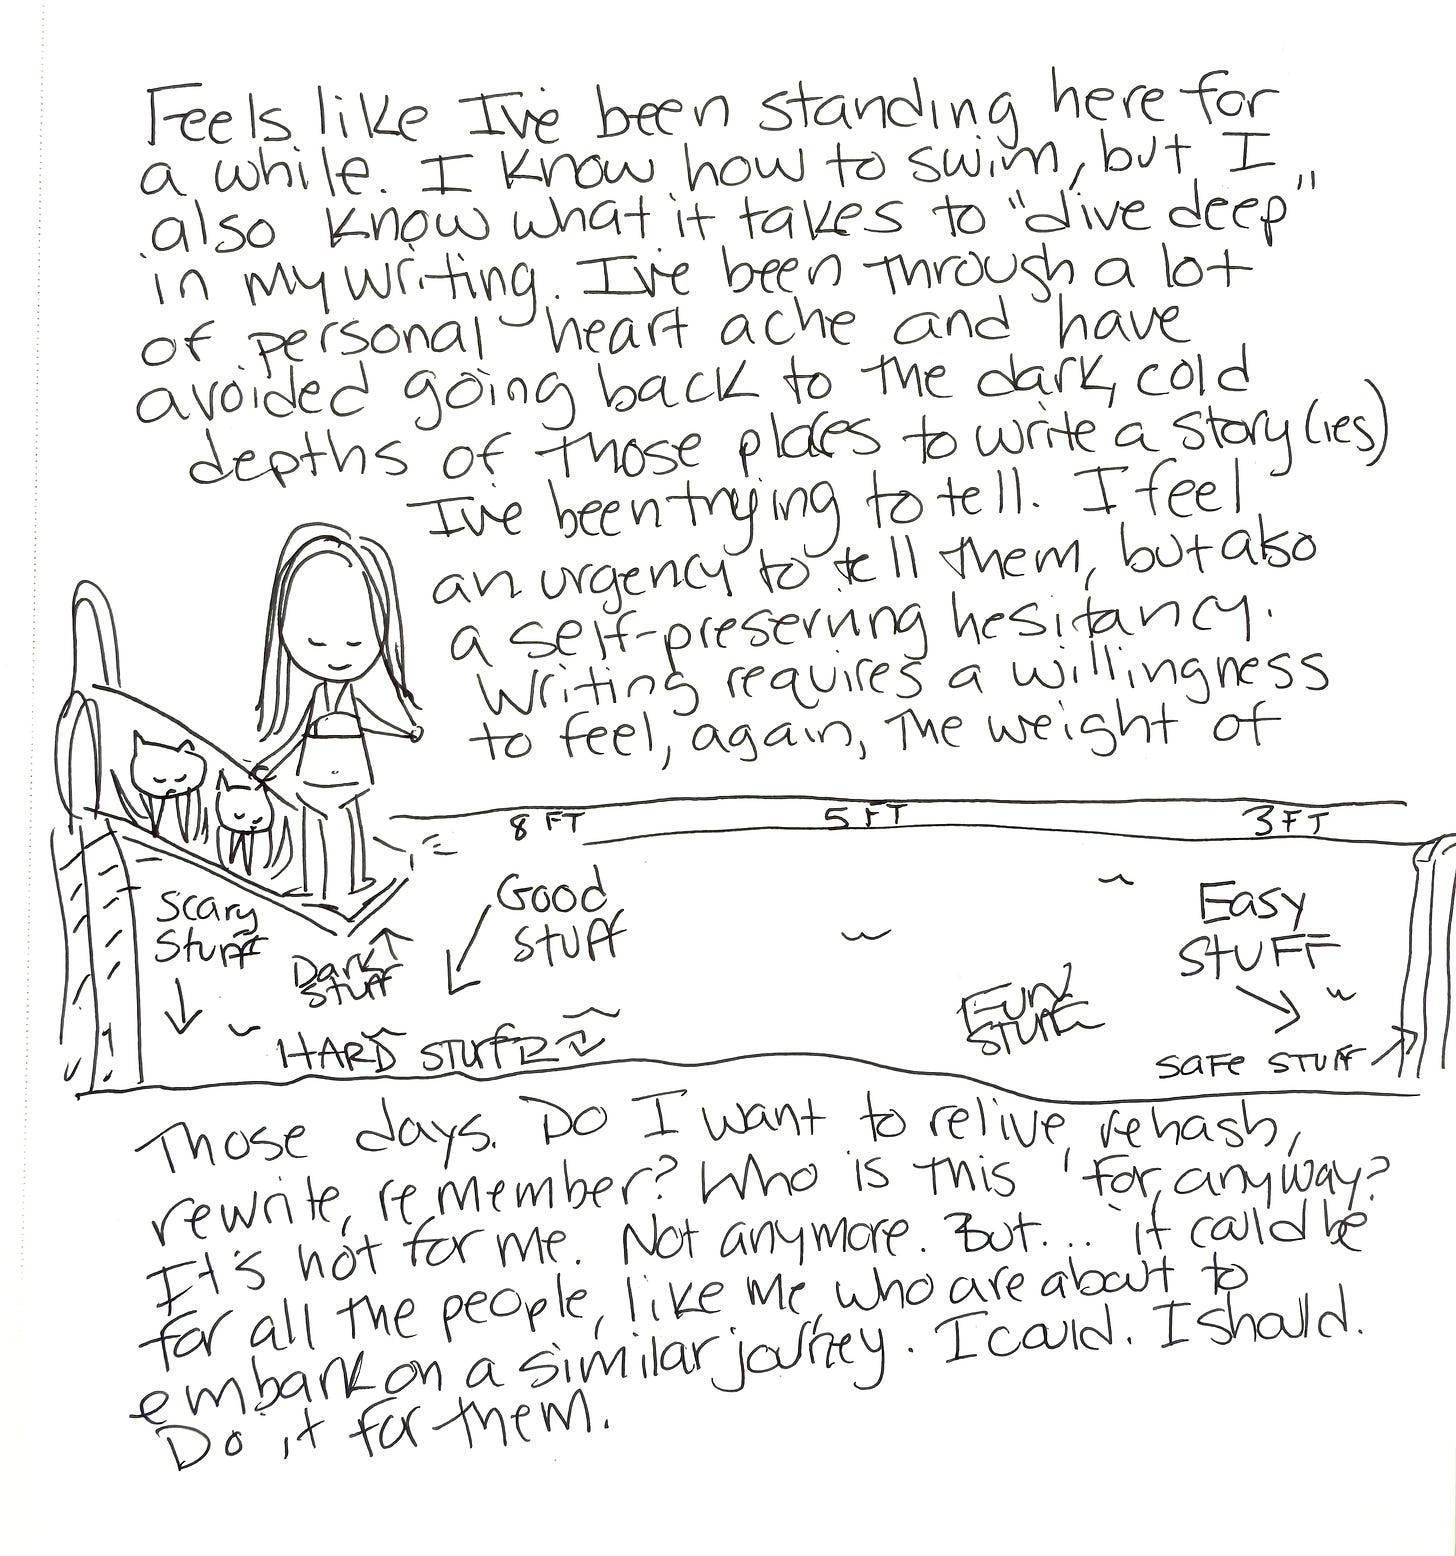 Feels like I've been standing here for
a while. I know how to swim, but I
also know what it takes to "dive deep"
in my writing. I've been through a lot
of personal heart ache and have
avoided going back to the dark, cold
depths of those places to write a story(ies)
I've been trying to tell. I feel
an urgency to tell them, but also
a self-preserving hesitancy.
Writing requires a willingness
to feel, again, the weight of
8 FT 5 FT 3 FT
Scary
Stuff
Dark
Stuff
Good
Stuff
HARD STUFF
FUN
STUFF
Easy
STUFF
SAFE STUFF
Those days. Do I want to relive, rehash,
rewrite, remember? Who is this for, anyway?
It's not for me. Not anymore. But... it could be
for all the people, like me who are about to
embark on a similar journey. I could. I should.
Do it for them.